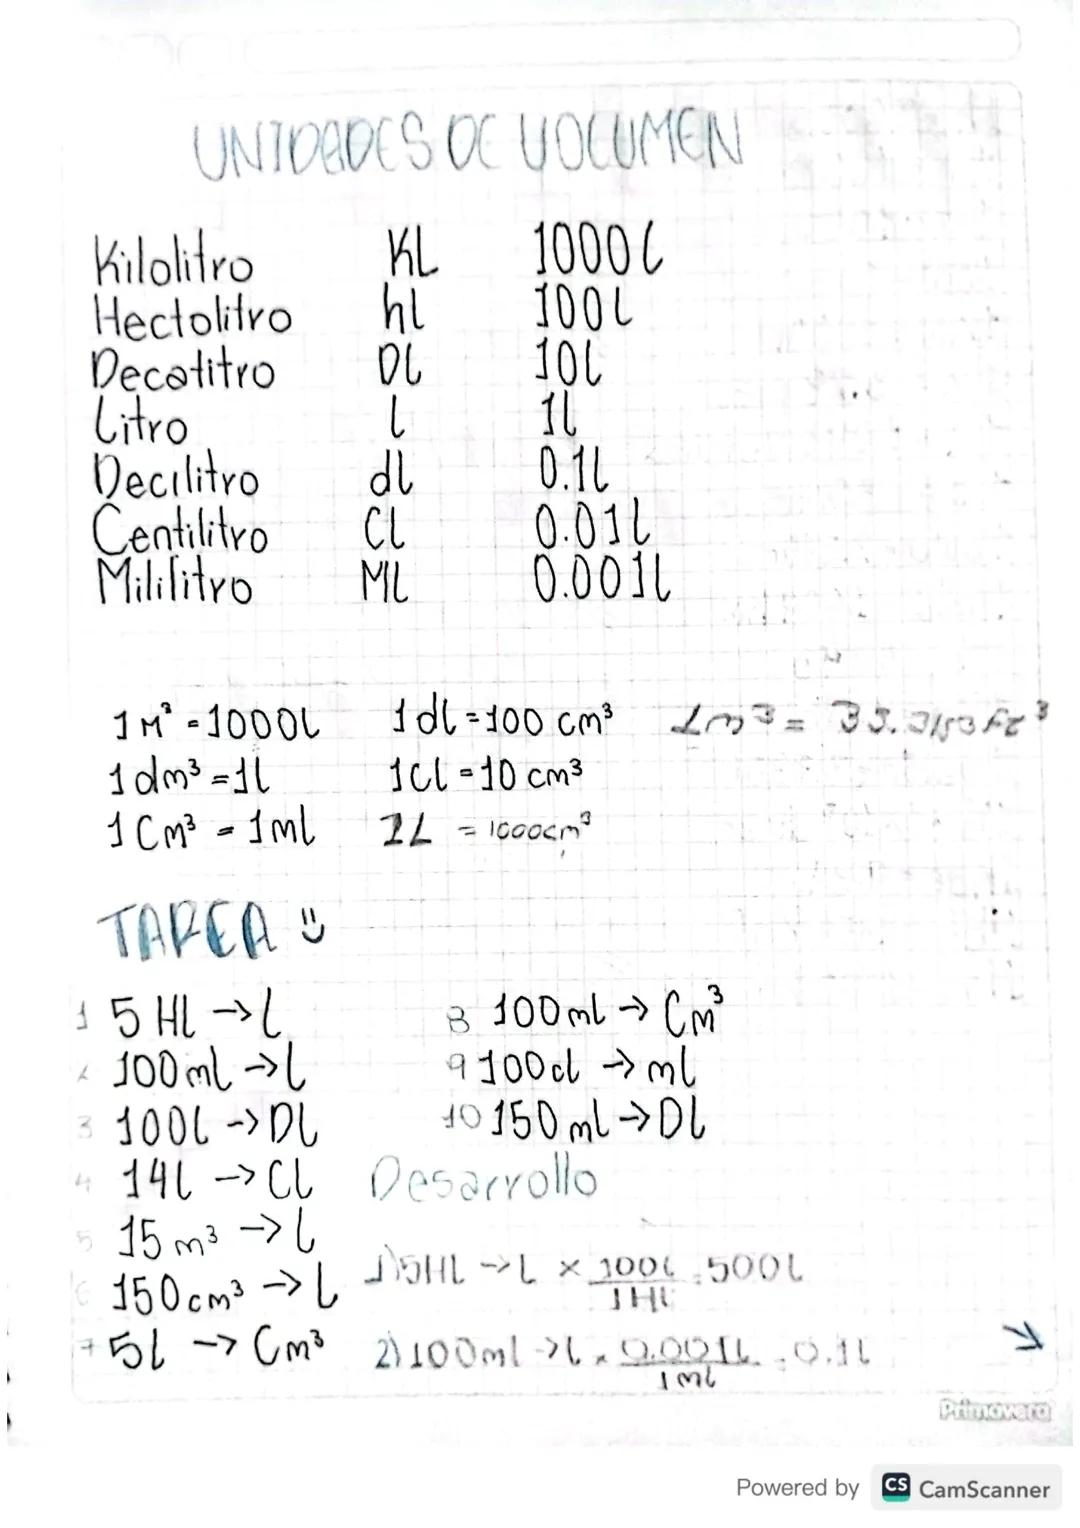 UNIDADES DE VOLUMEN
Kilolitro KL 1000l
Hectolitro hl 100l
Decalitro Dl 10l
Litro l 1l
Decilitro dl 0.1l
Centilitro Cl 0.01l
Mililitro Ml 0.001l
1 M³ = 1000l 1 dl = 100 cm³ 1m³ = 35.3153 ft³
1 dm³ = 1l 1Cl = 10 cm³
1 Cm³ = 1 ml 1L = 1000cm³
TAREA
1 5 Hl → l 8 100 ml → Cm³
2 100 ml → l 9 100 cl → ml
3 100l → Dl 10 150 ml → Dl
4 14l → Cl Desarrollo
5 15 m³ → l
6 150 cm³ → l 1) 5HL → L x 100l / 1Hl = 500l
7 5l → Cm³ 2) 100ml → l x 0.001L / 1ml = 0.1l
Primavera
Powered by CS CamScanner